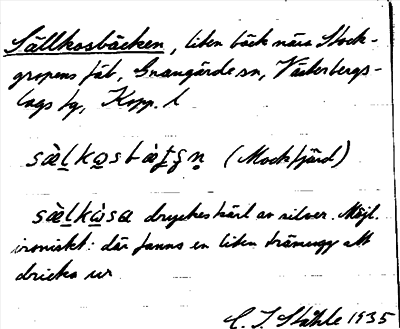 Sällkosbäcken, liten bäck nära Stock-
gropens fäb, Grangärde sn, Västerbergs-
lags tg, Kopp. l
sàl̲ko̲sbàʈʂn̥ (Mockfjärd)
sàl̲kà̲sa dryckeskärl av silver. Möjl.
ironiskt: där fanns en liten trämugg att
dricka ur
C. I. Ståhle 1935